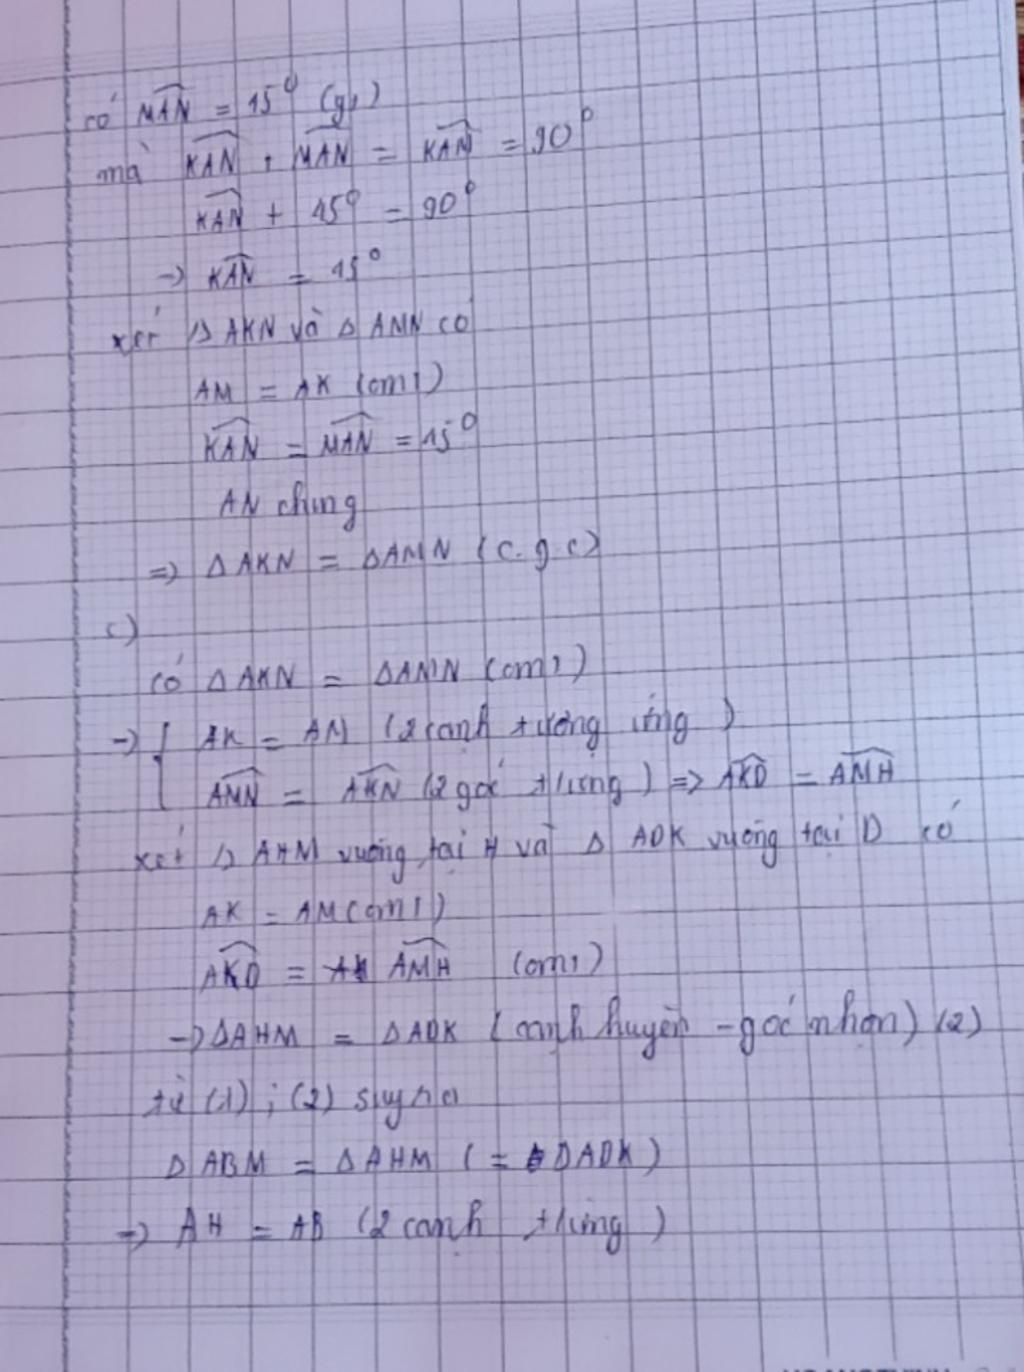 có MAN = 45° (gt)
mà KAN + MAN = KAN = 90°
KAN + 45° = 90°
→ KAN = 45°
xét Δ AKN và Δ AMN có
AM = AK (cmt)
KAN = MAN = 45°
AN chung
=> Δ AKN = ΔAMN (c.g.c)
c)
có Δ AKN = ΔAMN (cmt)
→ { AK = AM (2 cạnh tương ứng)
AMN = AKN (2 góc tương ứng) => AKD = AMH
xét Δ AHM vuông tại H và Δ ADK vuông tại D có
AK = AM (cmt)
AKD = AMH (cmt)
→ ΔAHM = ΔADK (cạnh huyền - góc nhọn) (2)
từ (1) ; (2) suy ra
Δ ABM = Δ AHM (= ΔADK)
→ AH = AB (2 cạnh tương ứng)